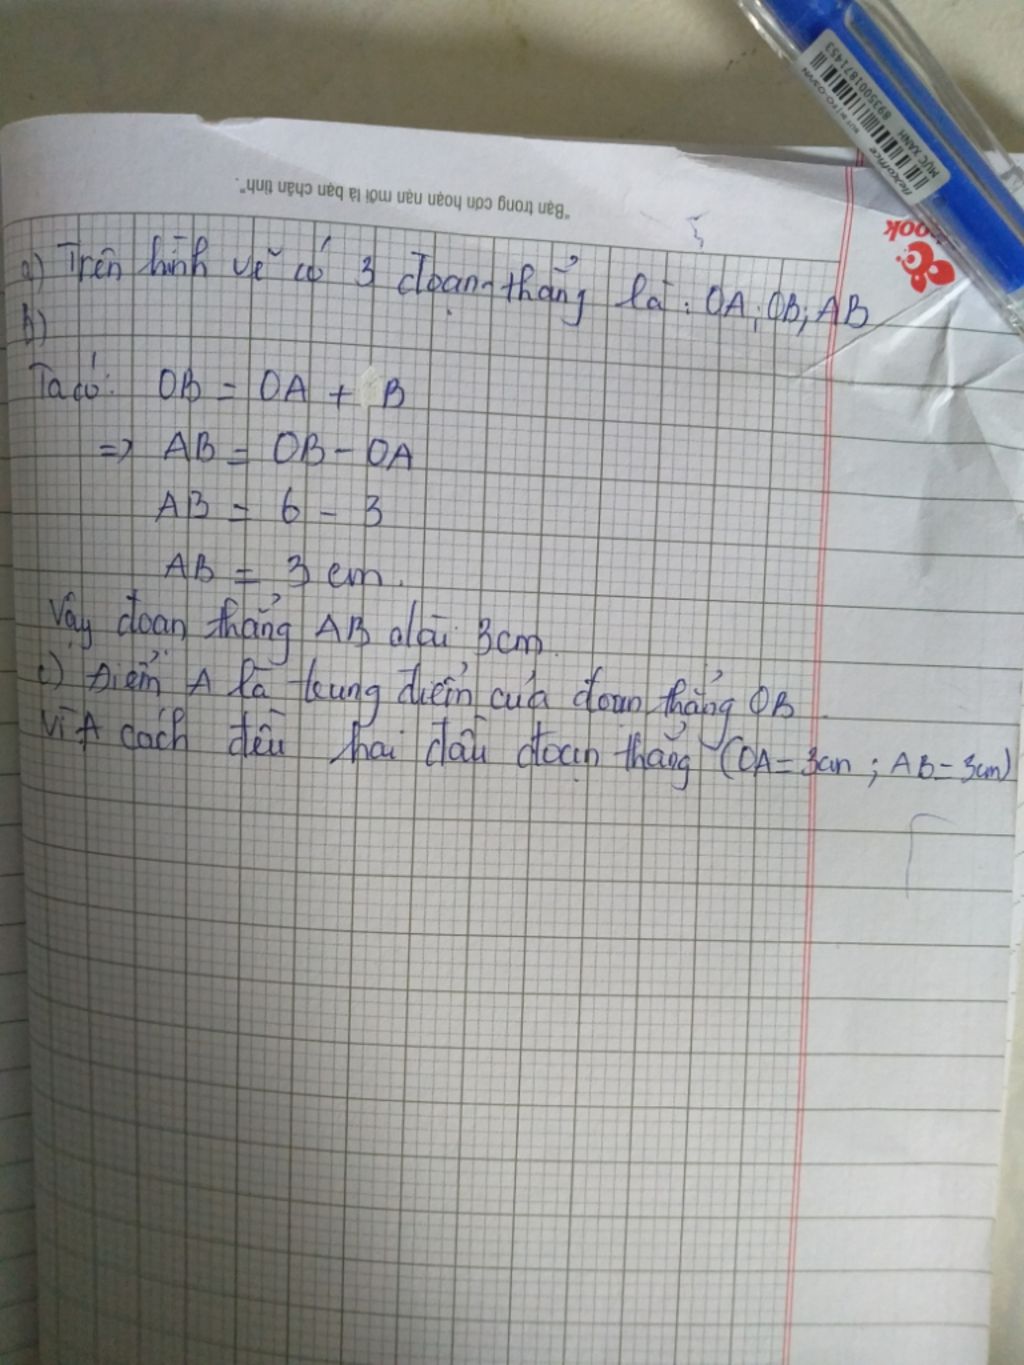 MỰC XANH
flexoffice
8935001871453
"Bạn trong cơn hoạn nạn mới là bạn chân tình".
ook
a) Trên hình vẽ có 3 đoạn thẳng là: OA; OB; AB
b)
Ta có: OB = OA + B
=> AB = OB - OA
AB = 6 - 3
AB = 3 cm.
Vậy đoạn thẳng AB dài 3cm.
c) Điểm A là trung điểm của đoạn thẳng OB.
Vì A cách đều hai đầu đoạn thẳng (OA = 3cm ; AB = 3cm)